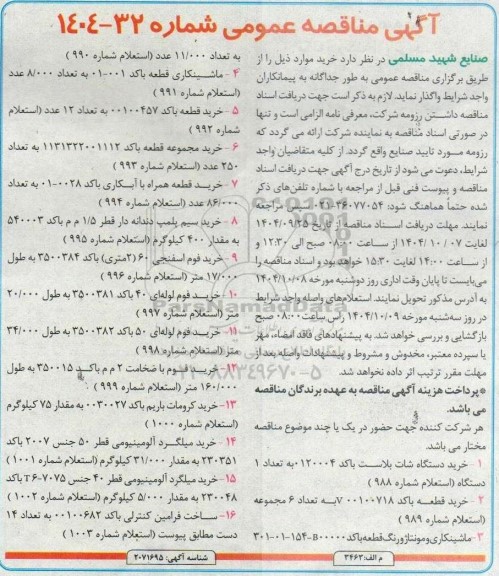 آگهی مناقصه عمومی شماره ۳۲-۱۴۰۴
صنایع شهید مسلمی در نظر دارد خرید موارد ذیل را از
طریق برگزاری مناقصه عمومی به طور جداگانه به پیمانکاران
واجد شرایط واگذار نماید. لازم به ذکر است جهت دریافت اسناد
مناقصه داشتن رزومه شرکت، معرفی نامه الزامی است و تنها
در صورتی اسناد مناقصه به نماینده شرکت ارائه می گردد که
رزومه مورد تایید صنایع واقع گردد. از کلیه متقاضیان واجد
شرایط، دعوت می شود از تاریخ درج آگهی جهت دریافت اسناد
مناقصه و پیوست فنی قبل از مراجعه با شماره تلفن‌های ذکر
شده حتماً هماهنگ شود: ۳۶۰۷۷۰۵۴-۰۲۱ سپس مراجعه
نمایند. مهلت دریافت اسناد مناقصه از تاریخ ۱۴۰۴/۰۹/۲۵
لغایت ۱۴۰۴/۱۰/۰۷ از ساعت ۰۸:۰۰ صبح الی ۱۲:۳۰ و
از ساعت ۱۴:۰۰ لغایت ۱۵:۳۰ خواهد بود و اسناد مناقصه را
می‌بایست تا پایان وقت اداری روز دوشنبه مورخه ۱۴۰۴/۱۰/۰۸
به آدرس مذکور تحویل نمایند. استعلام‌های واصله واجد شرایط
در روز سه‌شنبه مورخه ۱۴۰۴/۱۰/۰۹ راس ساعت ۰۸:۰۰ صبح
بازگشایی و بررسی خواهد شد. به پیشنهادهای فاقد امضاء، مهر
یا سپرده معتبر، مخدوش و مشروط و پیشنهادات واصله بعد از
مهلت مقرر ترتیب اثر داده نخواهد شد.
*پرداخت هزینه آگهی مناقصه به عهده برندگان مناقصه
می باشد.
هر شرکت کننده جهت حضور در یک یا چند موضوع مناقصه
مختار می باشد.
۱- خرید دستگاه شات بلاست باکد ۱۲۰۰۰۴ به تعداد ۱
دستگاه (استعلام شماره ۹۸۸)
۲- خرید قطعه باکد ۷۰۰۱۰۰۷۱۸ به تعداد ۶ مجموعه
(استعلام شماره ۹۸۹)
۳- ماشینکاری و مونتاژ ورنگ قطعه باکد ۳۰۱-۰۱-۱۵۴-B۰۰۰۰۰
به تعداد ۱۱/۰۰۰ عدد (استعلام شماره ۹۹۰)
۴- ماشینکاری قطعه باکد ۰۰۱-۰۱ به تعداد ۸/۰۰۰ عدد
(استعلام شماره ۹۹۱)
۵- خرید قطعه باکد ۰۰۱۰۰۴۵۷ به تعداد ۱۲ عدد (استعلام
شماره ۹۹۲)
۶- خرید مجموعه قطعه باکد ۱۱۳۱۳۲۲۰۰۱۱۱۲ به تعداد
۲۵۰ عدد (استعلام شماره ۹۹۳)
۷- خرید قطعه همراه با آبکاری باکد ۰۰۲۸-۰۱ به تعداد
۸۶/۰۰۰ عدد (استعلام شماره ۹۹۴)
۸- خرید سیم پلمپ دندانه دار قطر ۱/۵ م م باکد ۵۴۰۰۰۳
به مقدار ۴۰۰ کیلوگرم (استعلام شماره ۹۹۵)
۹- خرید فوم اسفنجی ۶۰ (۲متری) باکد ۳۵۰۰۳۸۴ به طول
۱۷/۰۰۰ متر (استعلام شماره ۹۹۶)
۱۰- خرید فوم لوله‌ای ۴۰ باکد ۳۵۰۰۳۸۱ به طول ۲۰/۰۰۰
متر (استعلام شماره ۹۹۷)
۱۱- خرید فوم لوله‌ای ۵۰ باکد ۳۵۰۰۳۸۲ به طول ۳۴/۰۰۰
متر (استعلام شماره ۹۹۸)
۱۲- خرید فوم با ضخامت ۲ م م باکد ۳۵۰۰۱۵ به طول
۱۶۰/۰۰۰ متر (استعلام شماره ۹۹۹)
۱۳- خرید کرومات باریم باکد ۰۰۳۰۰۲۷ به مقدار ۷۵ کیلوگرم
(استعلام شماره ۱۰۰۰)
۱۴- خرید میلگرد آلومینیومی قطر ۵۰ جنس ۲۰۰۷ باکد
۲۳۰۳۵۱ به مقدار ۳۱/۰۰۰ کیلوگرم (استعلام شماره ۱۰۰۱)
۱۵- خرید میلگرد آلومینیومی قطر ۴۰ جنس ۷۰۷۵-T۶ باکد
۲۳۰۰۴۸ به مقدار ۵/۰۰۰ کیلوگرم (استعلام شماره ۱۰۰۲)
۱۶- ساخت فرامین کنترلی باکد ۰۰۱۰۰۶۸۲ به تعداد ۱۴
دست مطابق پیوست (استعلام شماره ۱۰۰۳)
م الف: ۳۴۶۳
شناسه آگهی: ۲۰۷۱۶۹۵
ParsNamadData
۰۲۱-۸۸۳۴۹۶۷۰-۵